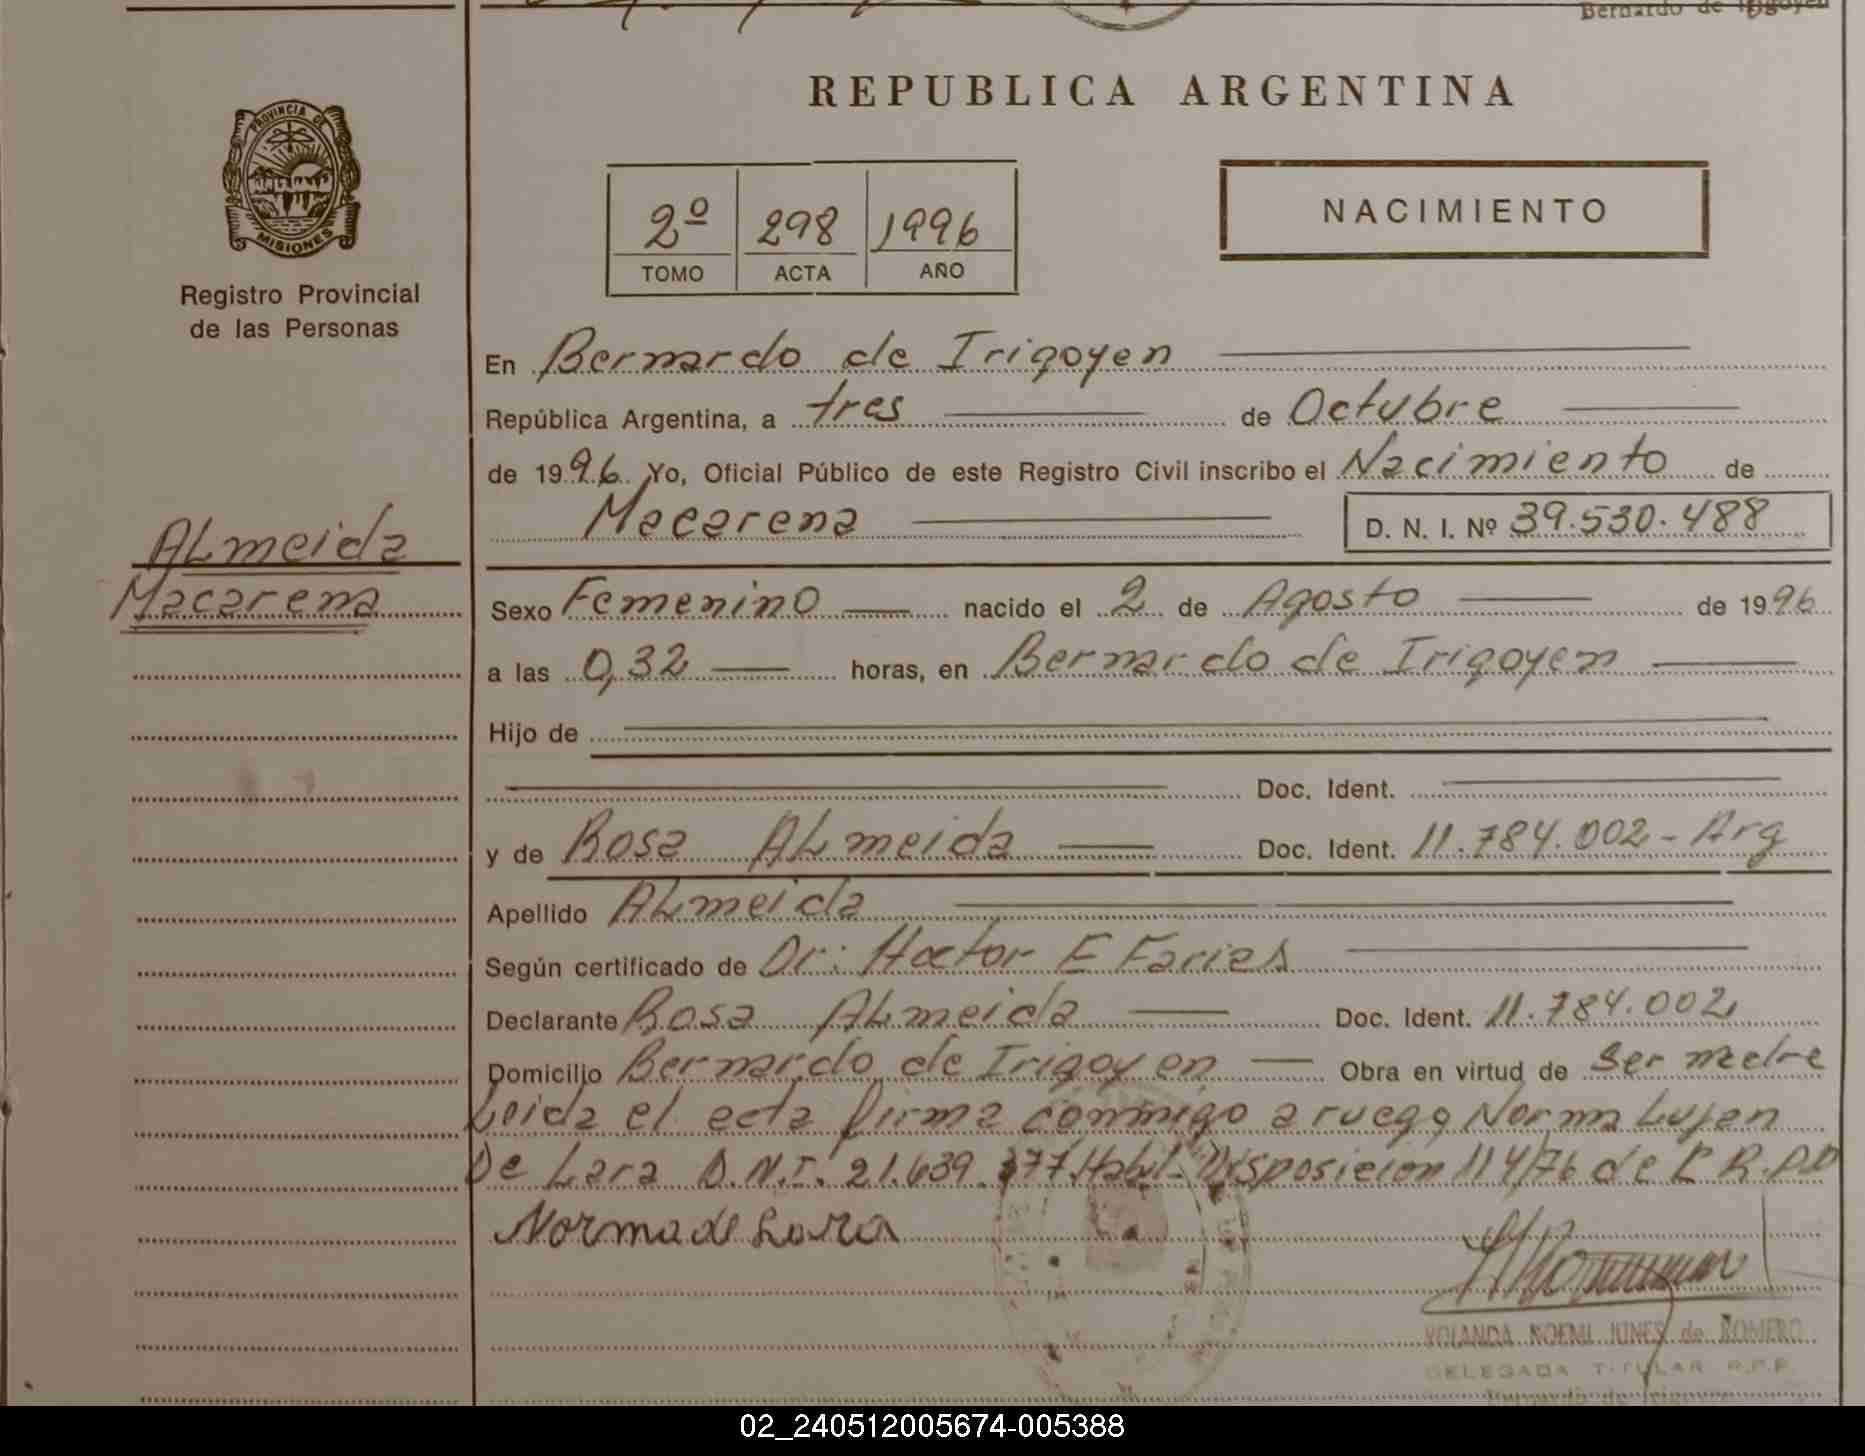 Bernardo de Irigoyen
REPUBLICA ARGENTINA
PROVINCIA DE
MISIONES
Registro Provincial
de las Personas
2º 298 1996
TOMO ACTA AÑO
NACIMIENTO
En Bernardo de Irigoyen
República Argentina, a tres de Octubre
de 1996 Yo, Oficial Público de este Registro Civil inscribo el Nacimiento de
Macarena D. N. I. Nº 39.530.488
ALmeida
Macarena
Sexo Femenino nacido el 2 de Agosto de 1996
a las 0,32 horas, en Bernardo de Irigoyen
Hijo de
Doc. Ident.
y de Rosa ALmeida Doc. Ident. 11.784.002 - Arg
Apellido ALmeida
Según certificado de Dr: Hector E Faries
Declarante Rosa ALmeida Doc. Ident. 11.784.002
Domicilio Bernardo de Irigoyen Obra en virtud de ser madre
Leida el acta firma conmigo a ruego Norma Lujan
De Lara D.N.I. 21.639.377. Habil- Disposicion 114/76 de
Norma de Lara
YOLANDA NOEMI JUNES de ROMERO
DELEGADA TITULAR R.P.P.
Bernardo de Irigoyen
02_240512005674-005388